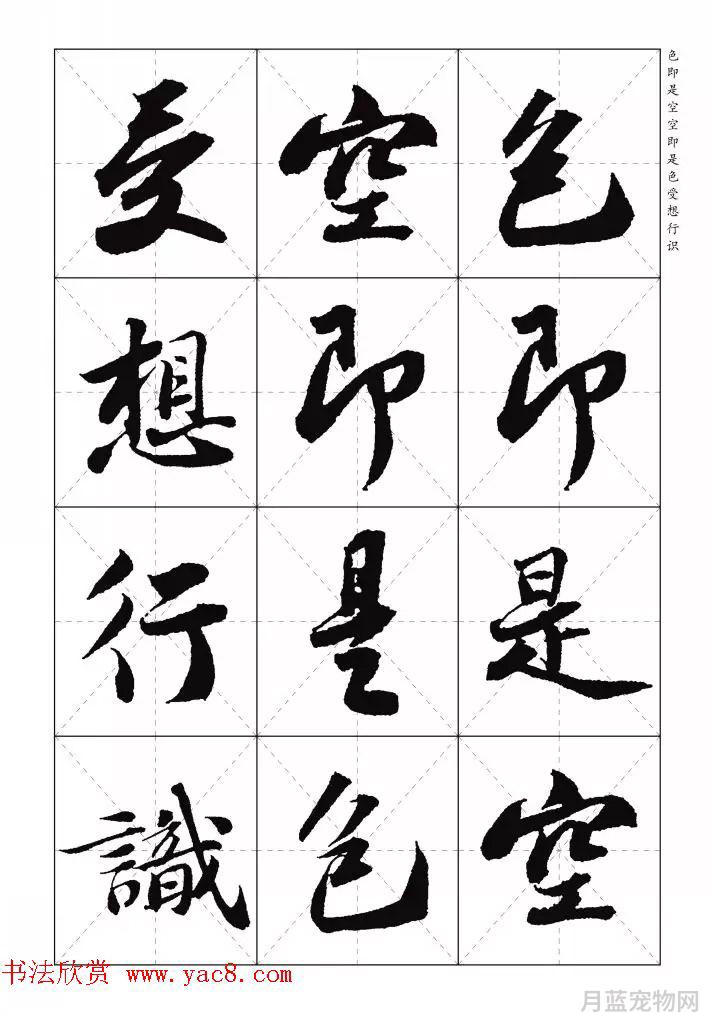 色即是空
空即是色
受想行識
色即是空空即是色受想行识
书法欣赏 www.yac8.com
月蓝宠物网